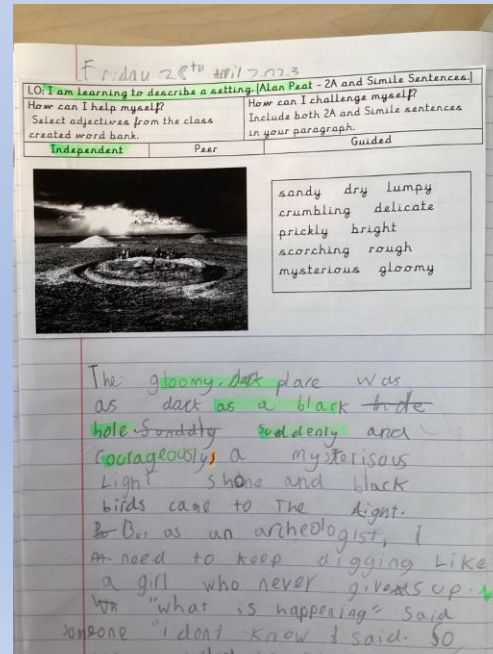 Friday 28th April 2023
LO: I am learning to describe a setting. [Alan Peat - 2A and Simile Sentences.]
How can I help myself?
Select adjectives from the class
created word bank.
How can I challenge myself?
Include both 2A and Simile sentences
in your paragraph.
Independent Peer Guided
sandy dry lumpy
crumbling delicate
prickly bright
scorching rough
mysterious gloomy
The gloomy, dark place was
as dark as a black
hole. suddenly and
Courageously, a mysterisous
Light shone and black
birds came to The
But as an archeologist, I
need to keep digging Like
a girl who never gives up.
"what is happening" said
someone "i dont know I said. So